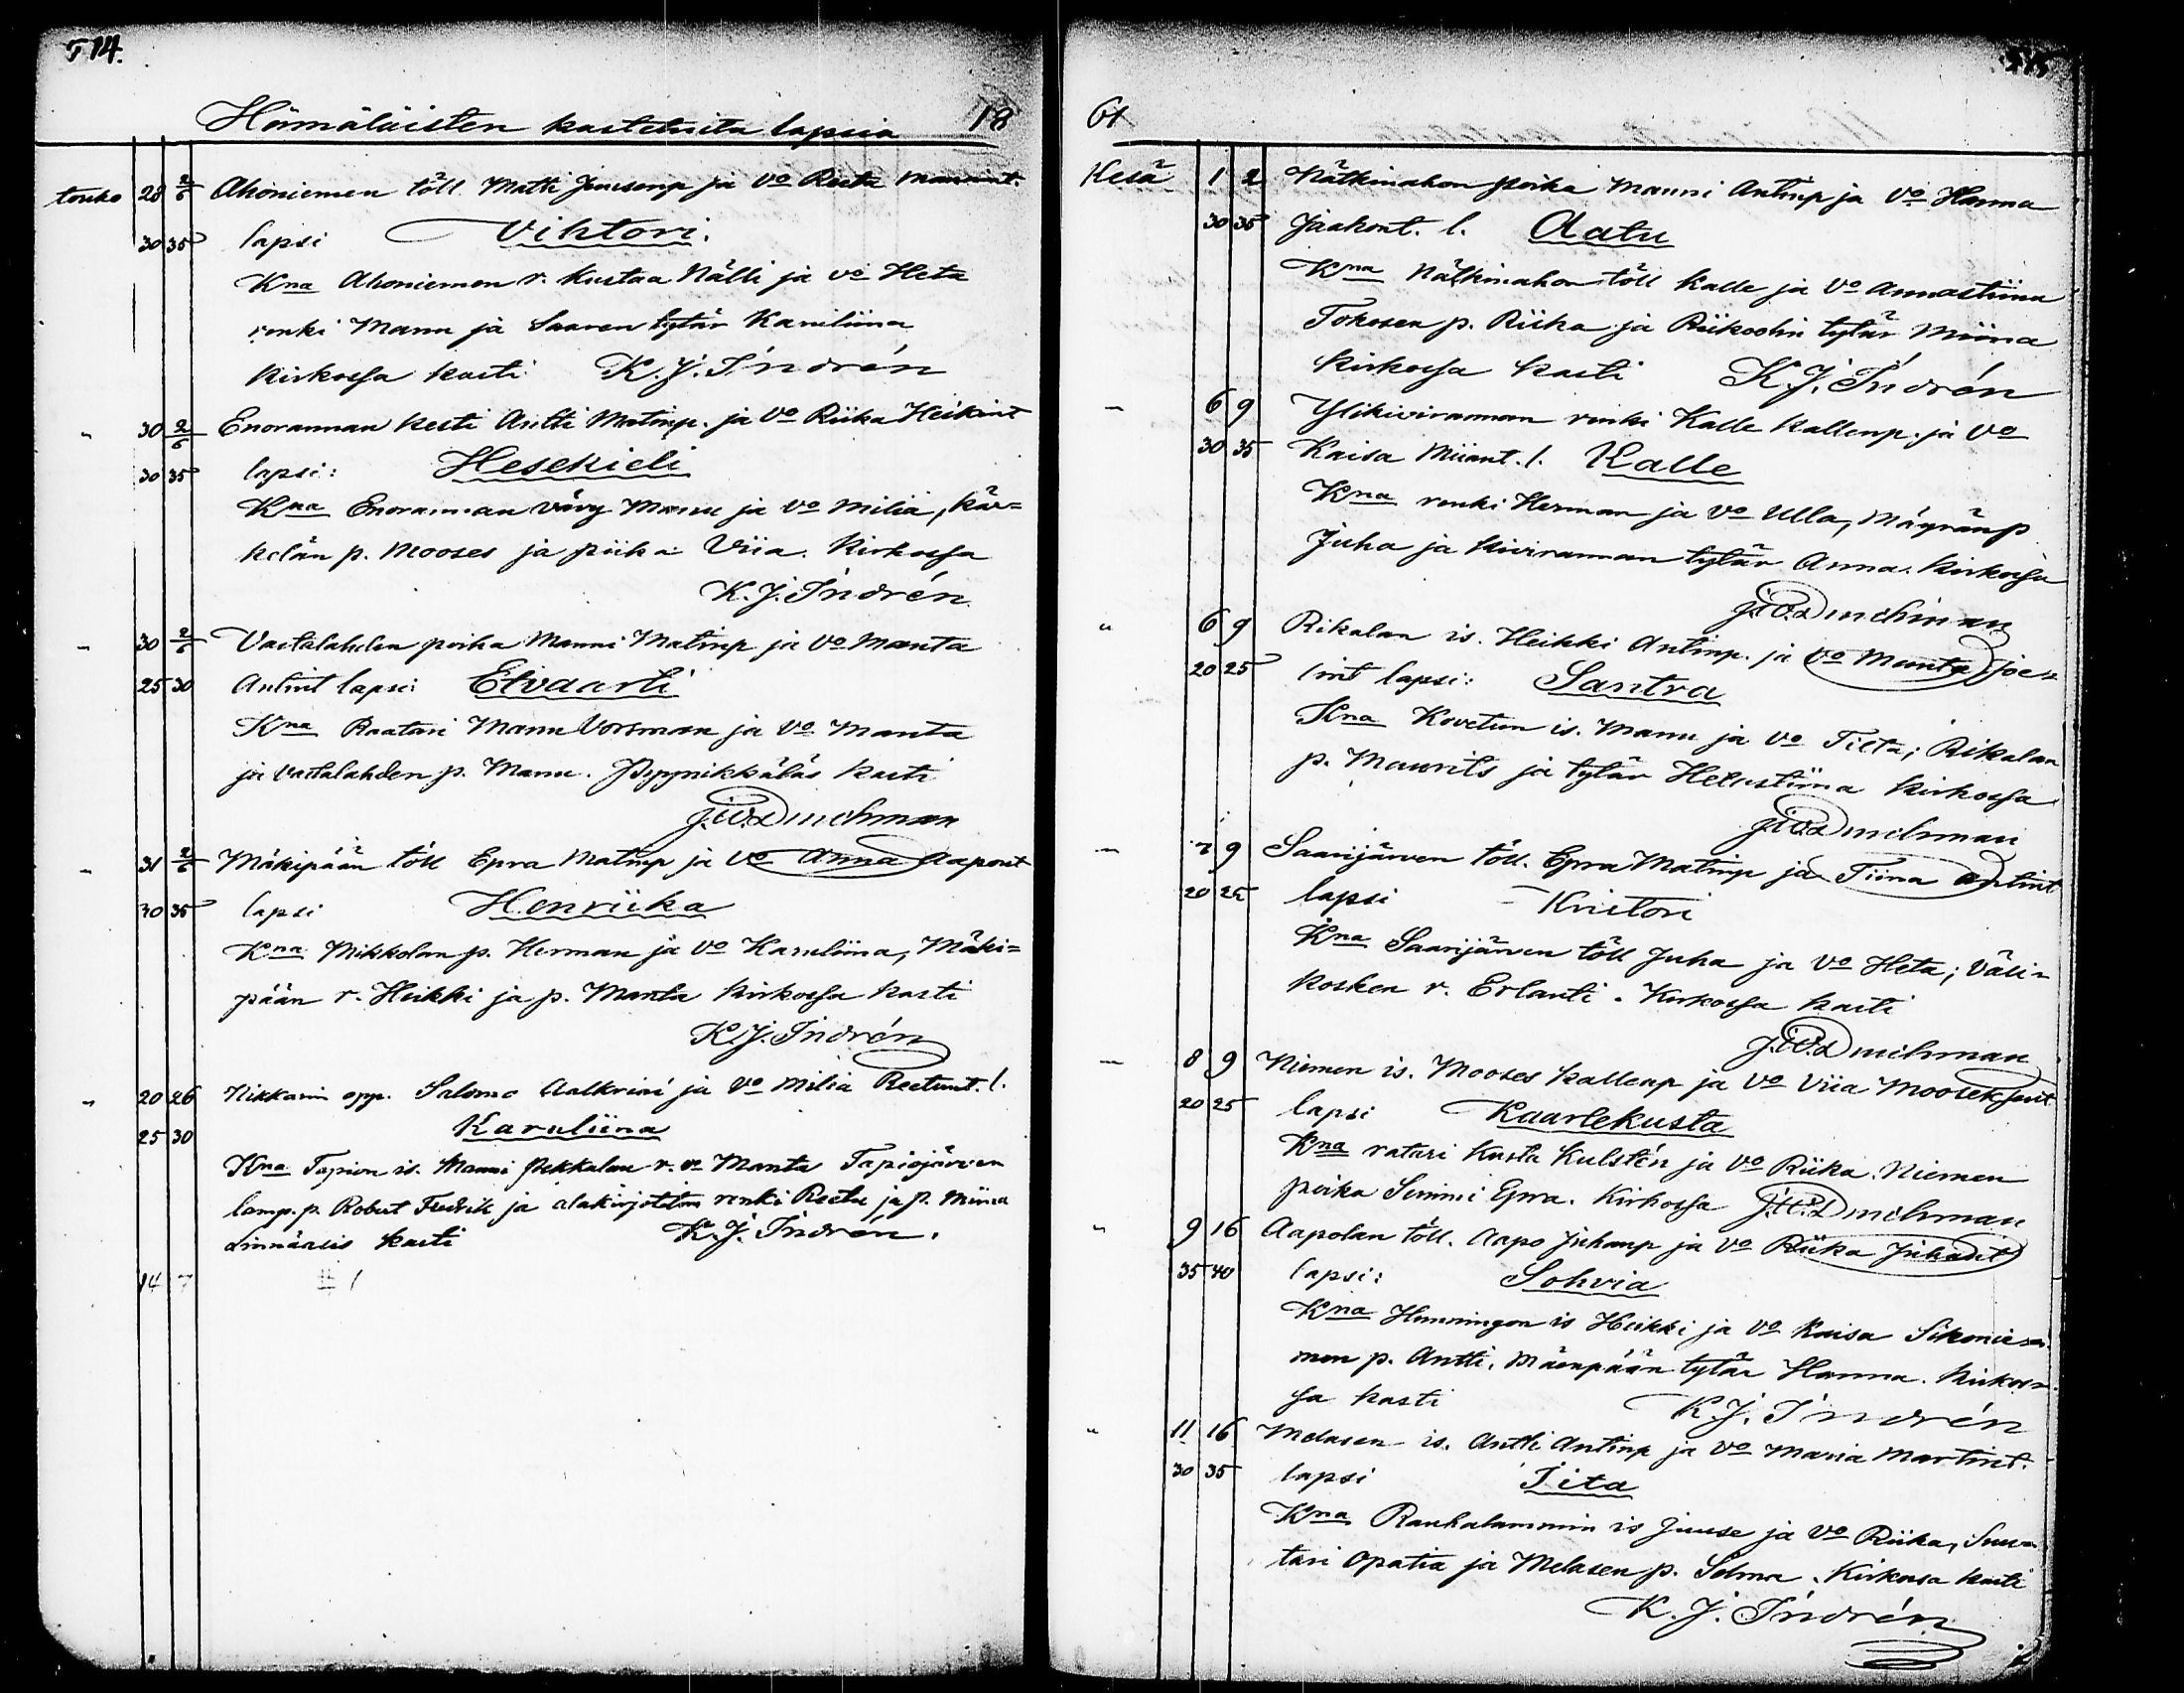 T 14.
Hämäläisten kastetuita lapsia 18
touko 28 2/6 Ahoniemen töll. Matti Juusenp ja vo Reeta Maununt.
30 35 lapsi Vihtori.
Kna Ahoniemen r. Kustaa Nälli ja vo Heta
renki Manu ja Saaren tytär Karuliina
Kirkossa kasti K. J. Indrén
" 30 2/6 Enorannan kesti Antti Matinp. ja vo Riika Heikint
30 35 lapsi: Hesekieli
Kna Enorannan vävy Manu ja vo Milia, Kär=
kelän p. Mooses ja piika Viia. Kirkossa
K. J. Indrén
- 30 2/6 Vastalahden poika Manni Matinp ja vo Manta
25 30 Antint lapsi: Etvaarti
Kna Raatari Manu Vorsman ja vo Manta
ja Vastalahden p. Manu. Pyynikkäläs kasti
- 31 2/6 Mäkipään töll Epra Matinp ja vo Anna Aapont
30 35 lapsi Henriika
Kna Mikkolan p. Herman ja vo Karuliina, Mäki=
pään r. Heikki ja p. Manta Kirkossa kasti
K. J. Indrén
" 20 26 Nikkarin opp. Salomo Aalkrini ja vo Milia Reetunt. l.
25 30 Karuliina
Kna Tapion is. Manni Pekkalan r. v. Manta Tapiojärven
lamp. p. Robert Fredrik ja alakirjotetun renki Reetu ja p. Miina
Linnäsis kasti K. J. Indrén.
14 7 # 1
61
Kesä 1 2 Nätkinahon poika Manni Antinp ja vo Hanna
30 35 Jaakont. l. Aatu
Kna Nätkinahon töll Kalle ja vo Annastiina
Tokosen p. Riika ja Riikoolin tytär Miina
Kirkossa kasti K. J. Indrén
- 6 9 Ylikiviranman renki Kalle Kallenp. ja vo
30 35 Kaisa Miiant. l. Kalle
Kna renki Herman ja vo Ulla, Mäyrän p
Juha ja Kivirannan tytär Anna. Kirkossa
" 6 9 Rikalan is. Heikki Antinp. ja vo Manta Joe=
20 25 lint lapsi: Santra
Kna Kovetun is. Manu ja vo Tilta; Rikalan
p. Maurits ja tytär Helustiina Kirkossa
- 7 9 Saarijärven töll. Epra Matinp ja Tiina Antint
20 25 lapsi Kristori
Kna Saarijärven töll Juha ja vo Heta; Väli=
kosken r. Erlanti. Kirkossa kasti
- 8 9 Niemen is. Mooses Kallenp ja vo Viia Mooseksent
20 25 lapsi Kaarlekusta
Kna ratari Kusta Kulstén ja vo Riika. Niemen
poika Simmi Epra. Kirkossa
" 9 16 Aapolan töll. Aapo Juhanp ja vo Riika Juhant
35 40 lapsi: Sohvia
Kna Hunningon is Heikki ja vo Kaisa Sikonie=
men p. Antti. Mäenpään tytär Hanna. Kirkos=
sa kasti K. J. Indrén
" 11 16 Melasen is. Antti Antinp ja vo Maria Martint.
30 35 lapsi Iita
Kna Rauhalammin is Juuse ja vo Riika, Suu=
tari Opatia ja Melasen p. Selma. Kirkossa kasti
K. J. Indrén